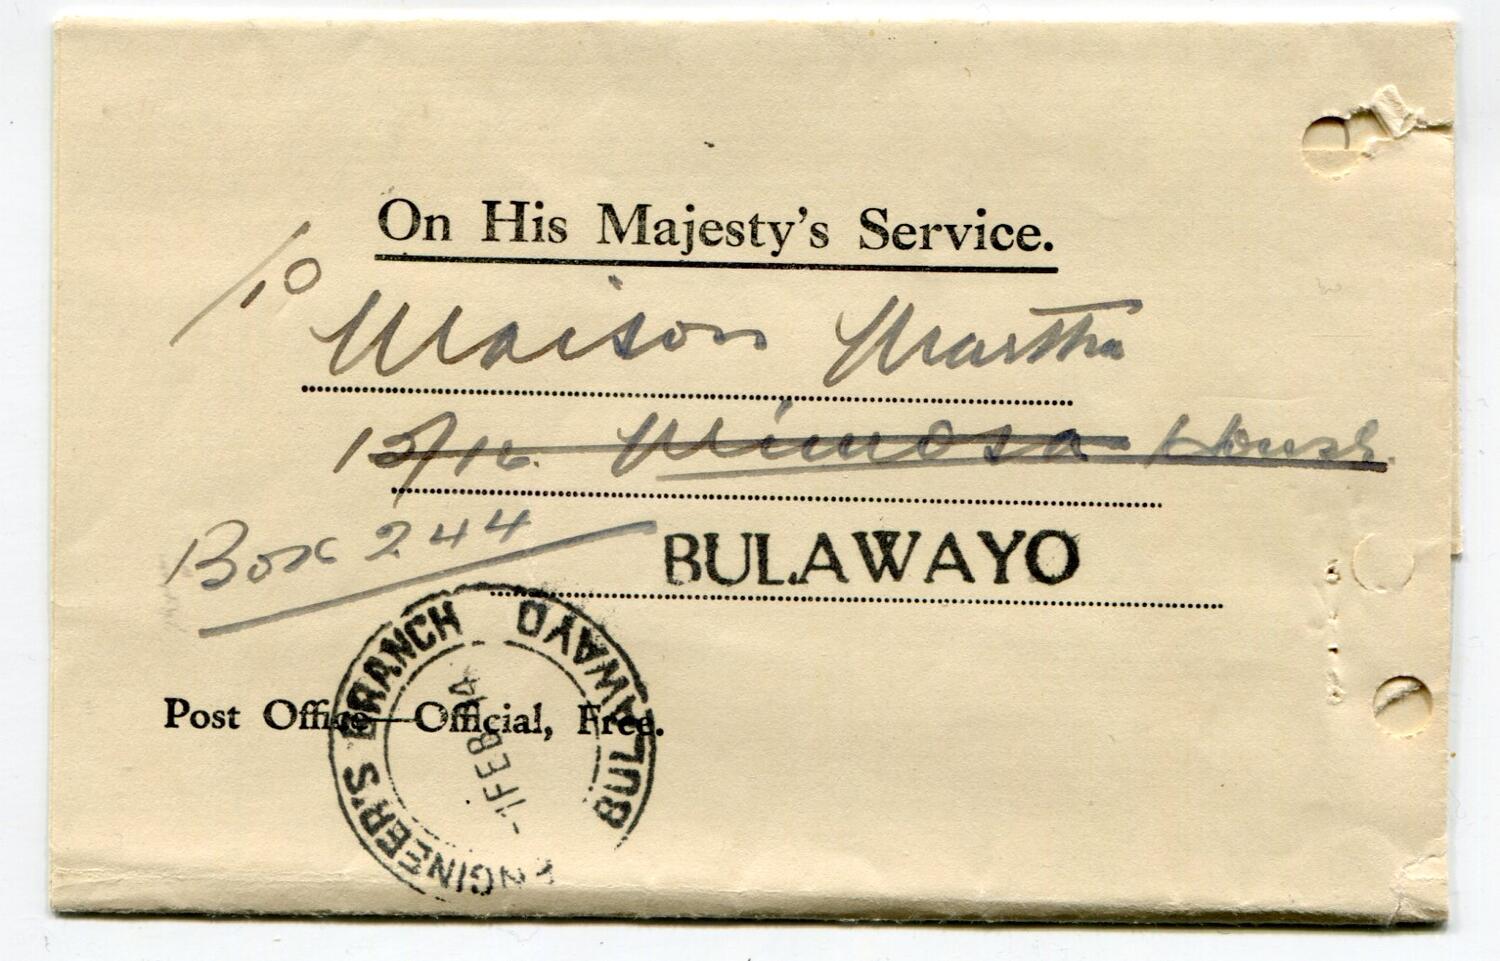 On His Majesty's Service.
/10
Maison Martha
15/16 Mimosa House
Box 244
BULAWAYO
Post Office—Official, Free.
ENGINEER'S BRANCH BULAWAYO
-1 FEB